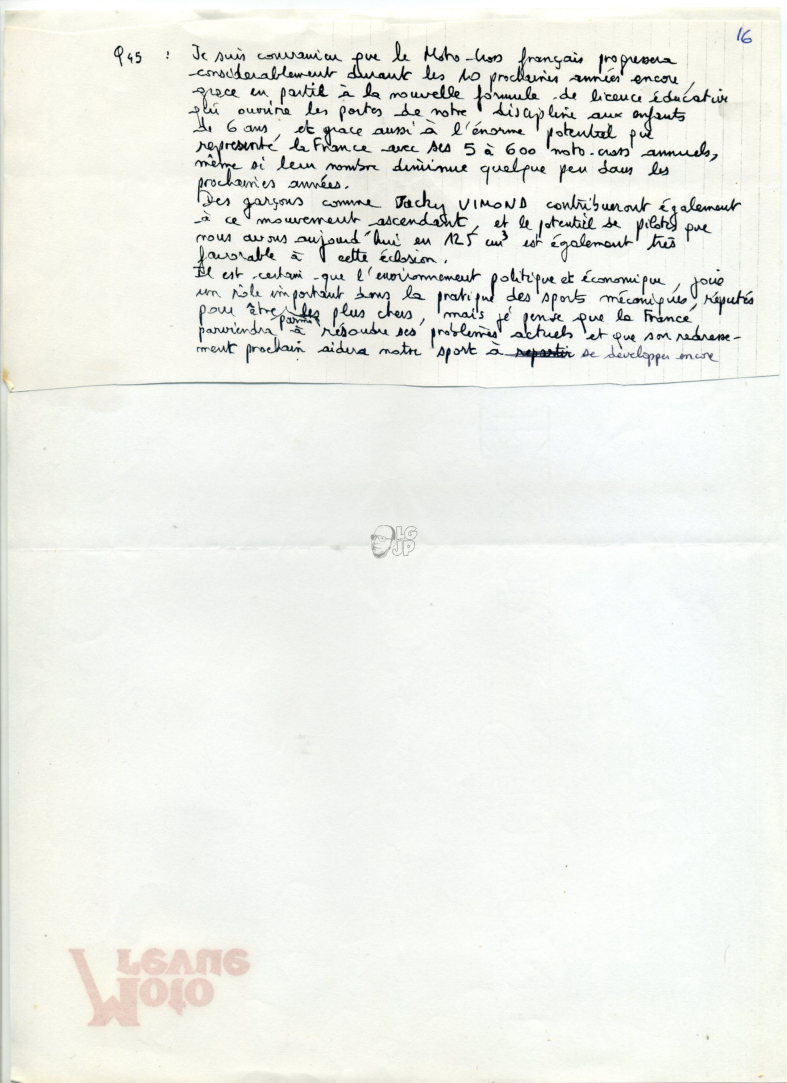 16
Q45 : Je suis convaincu que le Moto-cross français progressera
considerablement durant les 10 prochaines années encore,
grace en partie à la nouvelle formule de licence éducative
qui ouvrira les portes de notre discipline aux enfants
de 6 ans, et grace aussi à l'énorme potentiel que
représente la France avec ses 5 à 600 moto-cross annuels,
même si leur nombre diminue quelque peu dans les
prochaines années.
Des garçons comme Jacky VIMOND contribueront également
à ce mouvement ascendant, et le potentiel de pilotes que
nous avons aujourd'hui en 125 cm³ est également très
favorable à cette éclosion.
Il est certain que l'environnement politique et économique, joue
un rôle important dans la pratique des sports mécaniques, réputés
pour être parmi les plus chers, mais je pense que la France
parviendra à résoudre ses problèmes actuels et que son redresse-
ment prochain aidera notre sport à repartir se développer encore
LG
JP